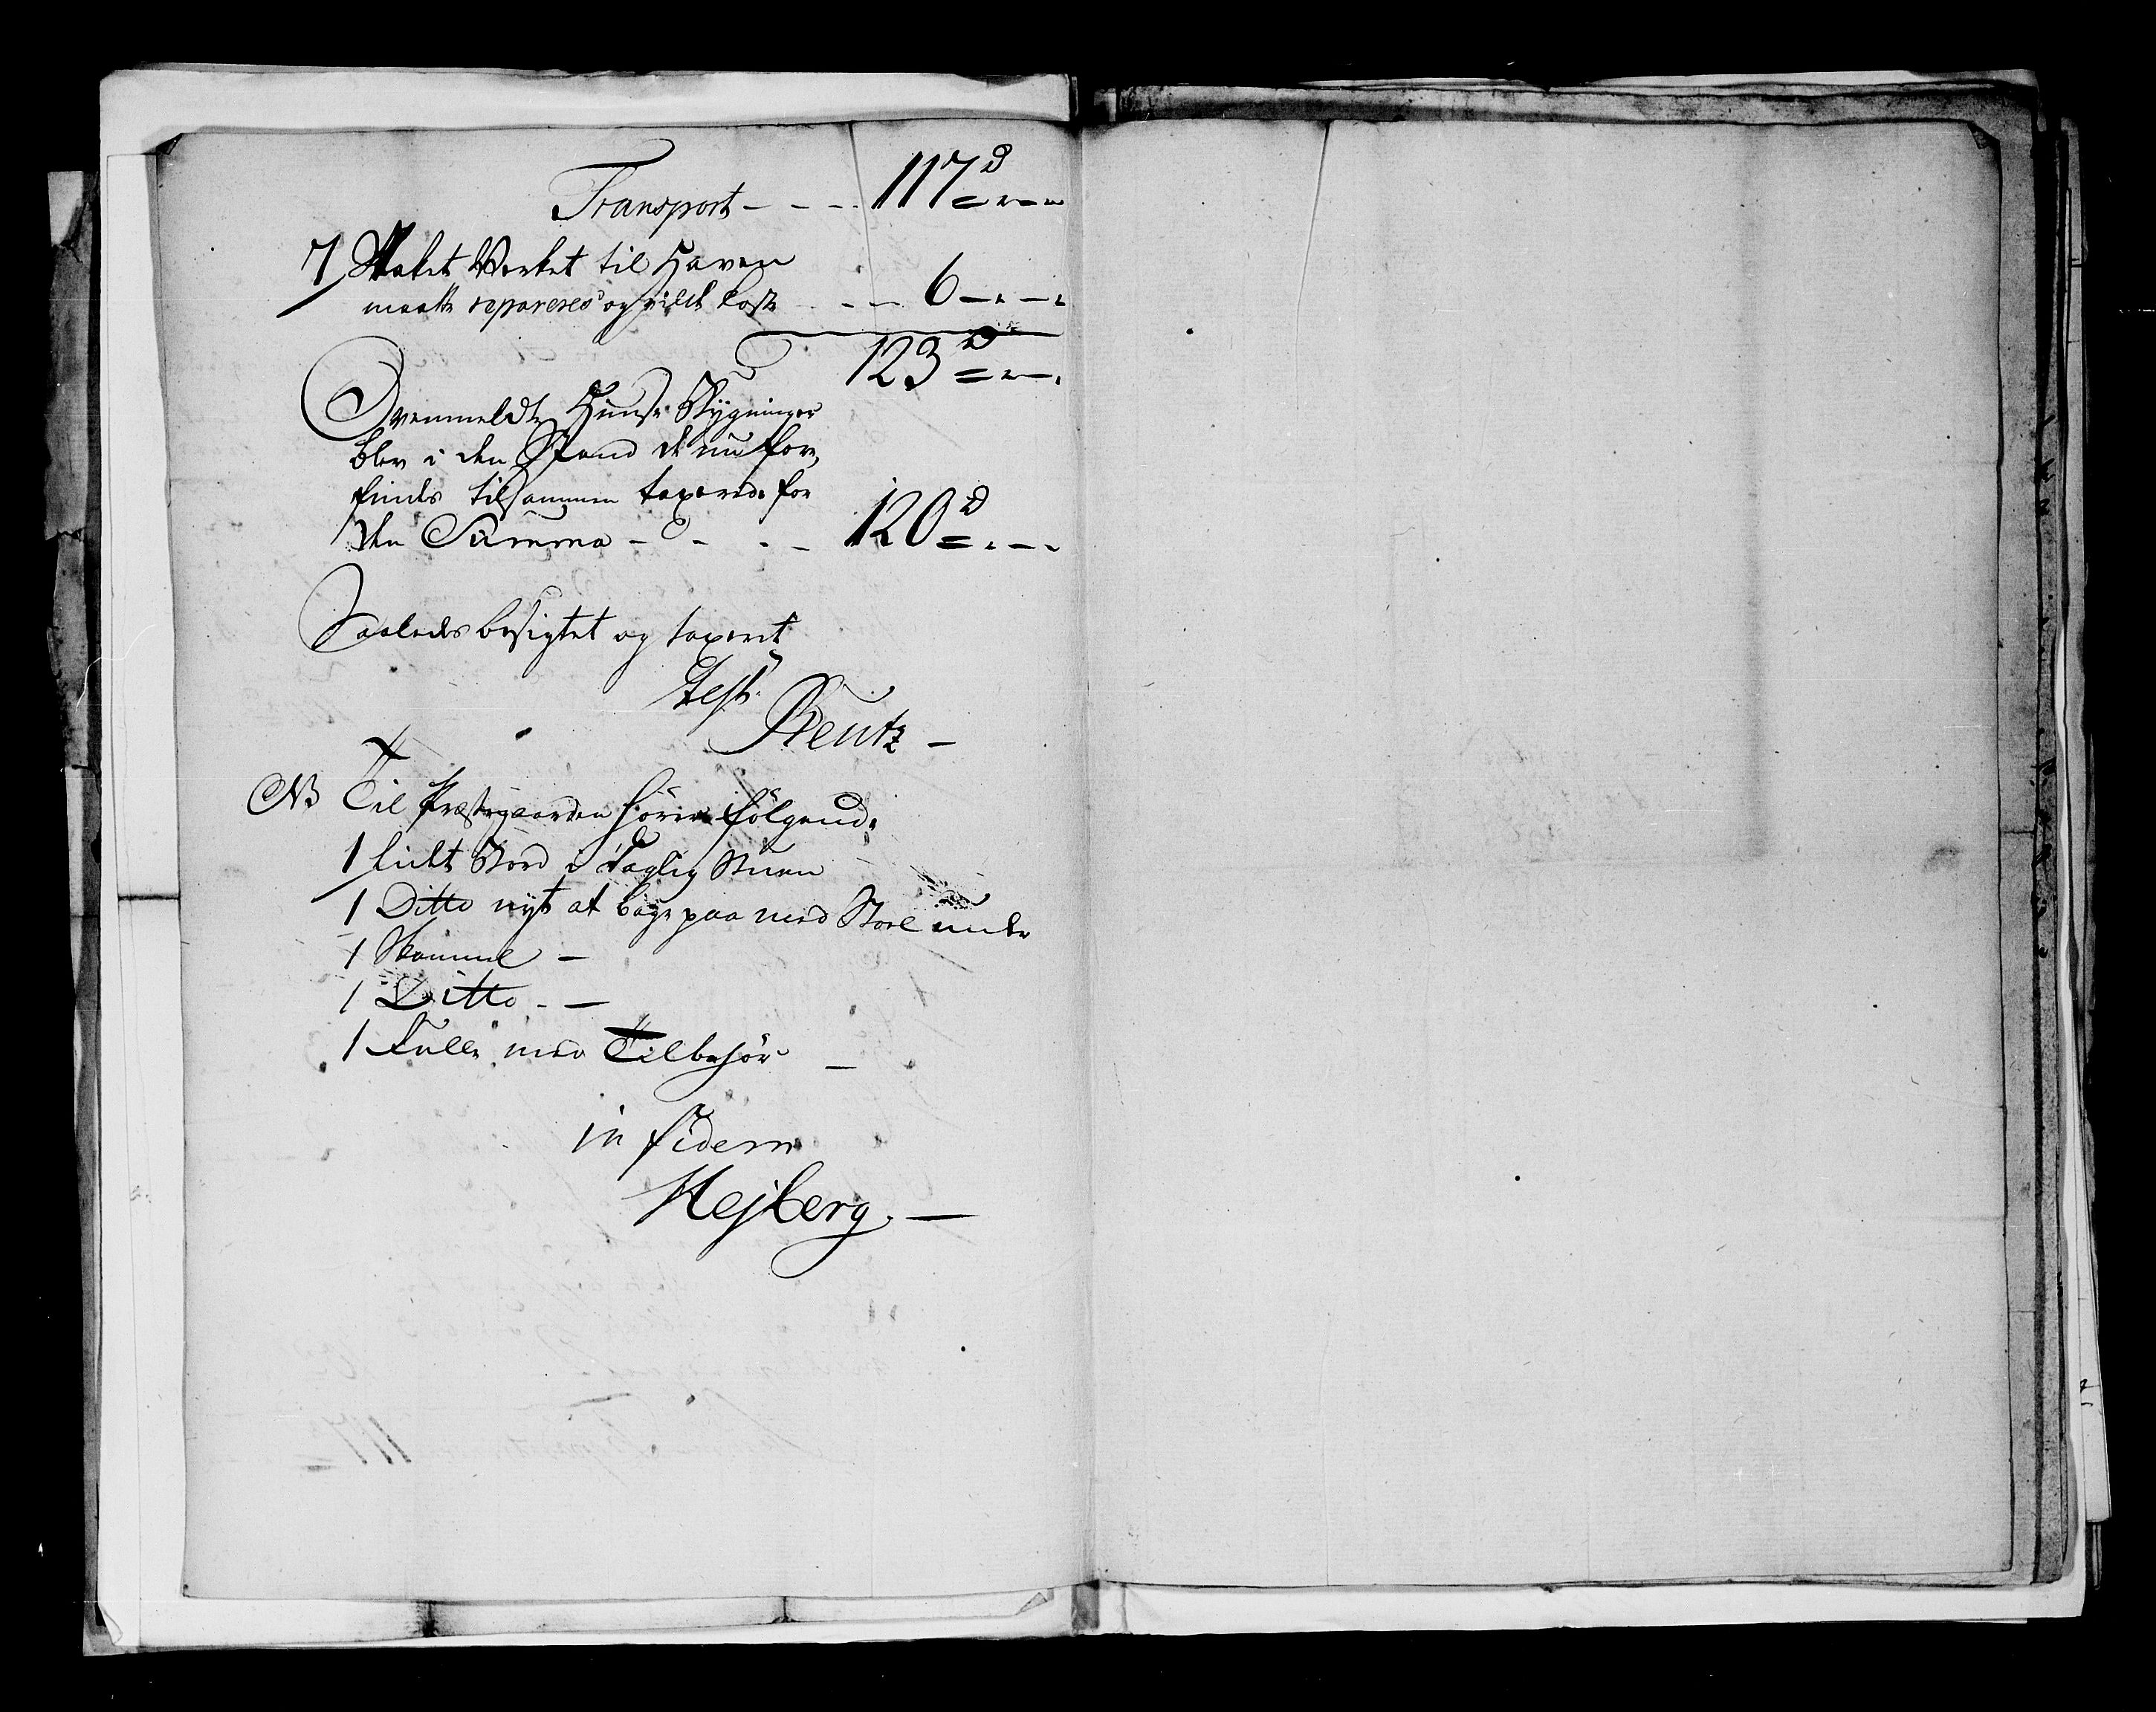 Transport - - - 117 d = " - "
7 Staket Verket til Haven
maatte repareres og vilde koste - - 6 - " - "
123 d = " - "
Ovenmeldte Huuse Bygninger
blev i den Stand de nu fore,
findes tilsammen taxerede for
den Summa - - - - 120 d = " - "
Saaledes besigtet og taxeret
Test.
Reutz -
NB Til Præstegaarden hører følgende
1 lidet Bord i Daglig Stuen
1 Ditto nyt at bage paa med Stoel under
1 Skammel -
1 Ditto - -
1 med Tilbehør -
in fidem
Hejberg. -